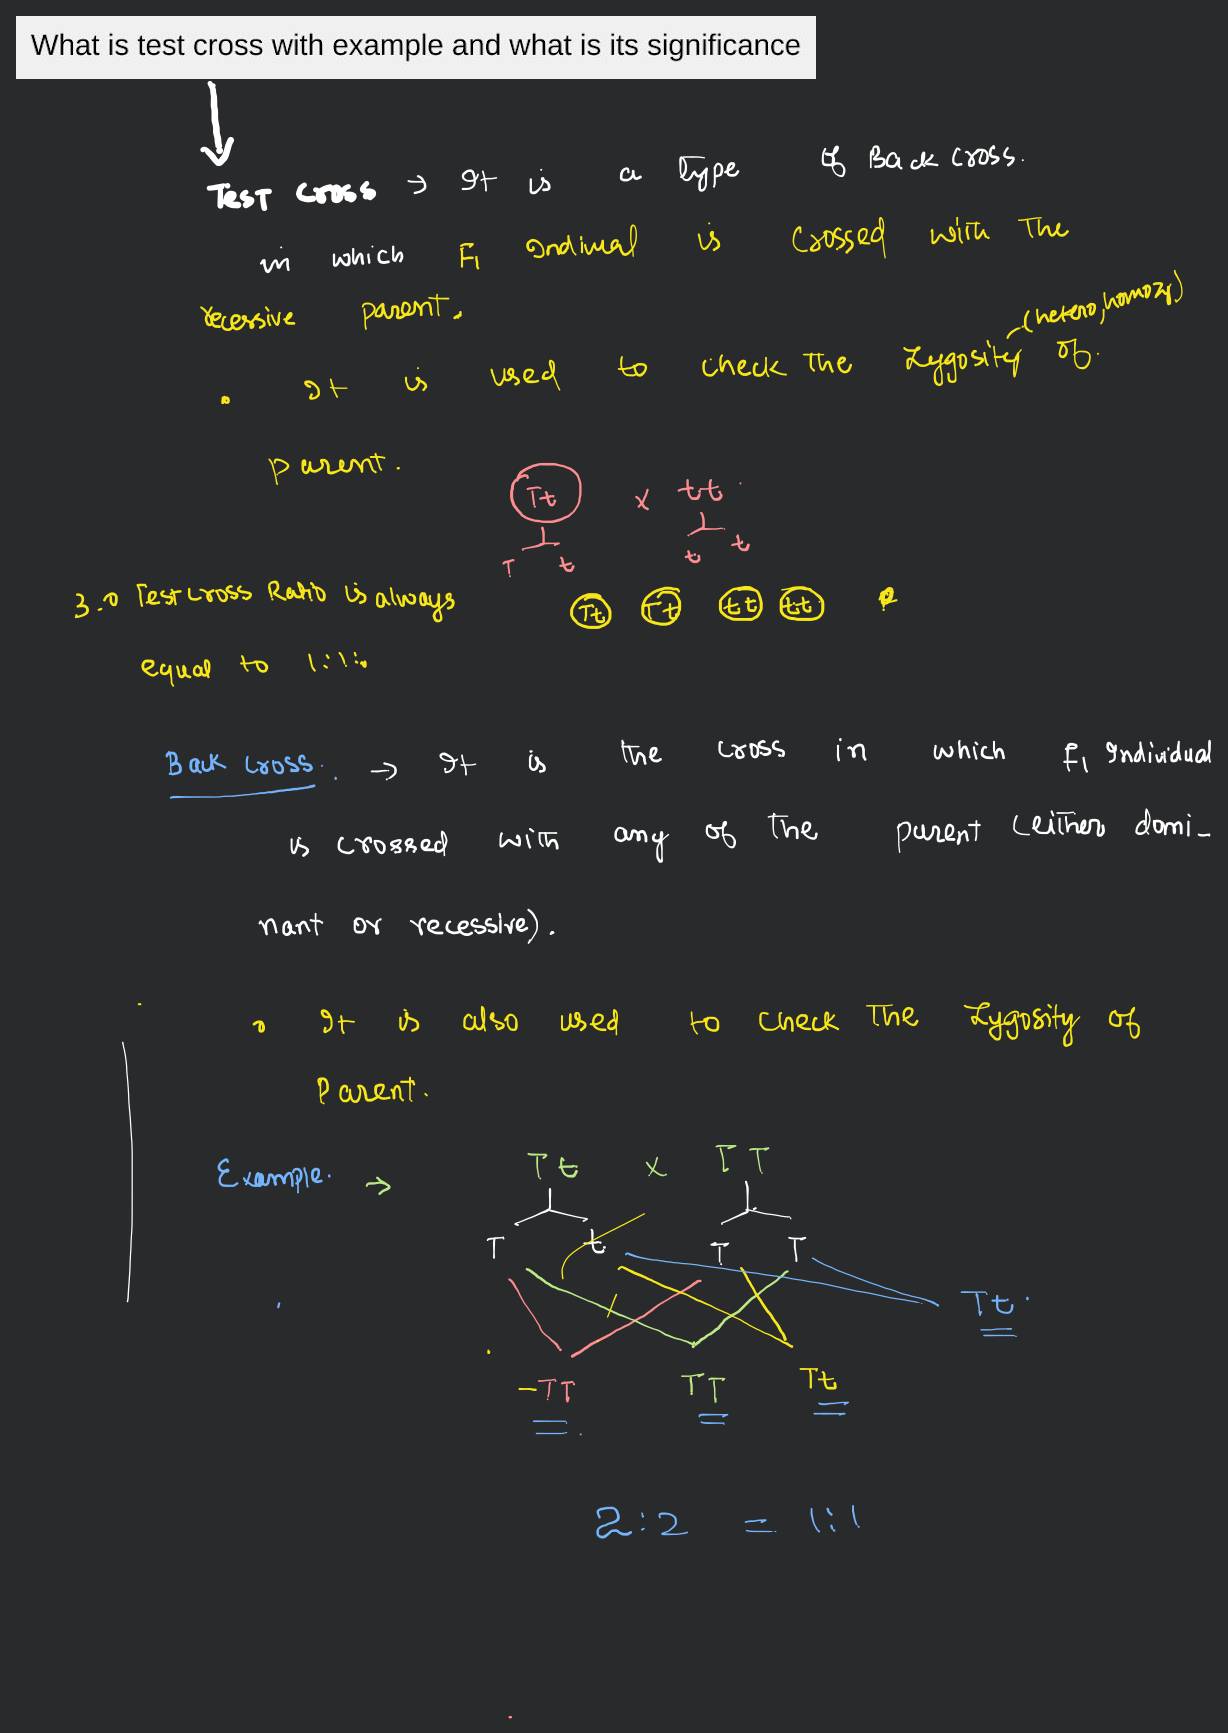 What is test cross with example and what is its significance
TEST CROSS → It is a type of Back cross.
in which F1 Indiviual is crossed with the
recessive parent.
(hetero, homozy)
• It is used to check the Zygosity of.
parent.
Tt x tt
T t t t
3. Test cross Ratio is always
Tt Tt tt tt
equal to 1:1:
Back cross. → It is the cross in which F1 Individual
is crossed with any of the parent (either domi-
nant or recessive).
• It is also used to check the Zygosity of
Parent.
Example. → Tt x TT
T t T T
Tt
-TT TT Tt
2:2 = 1:1